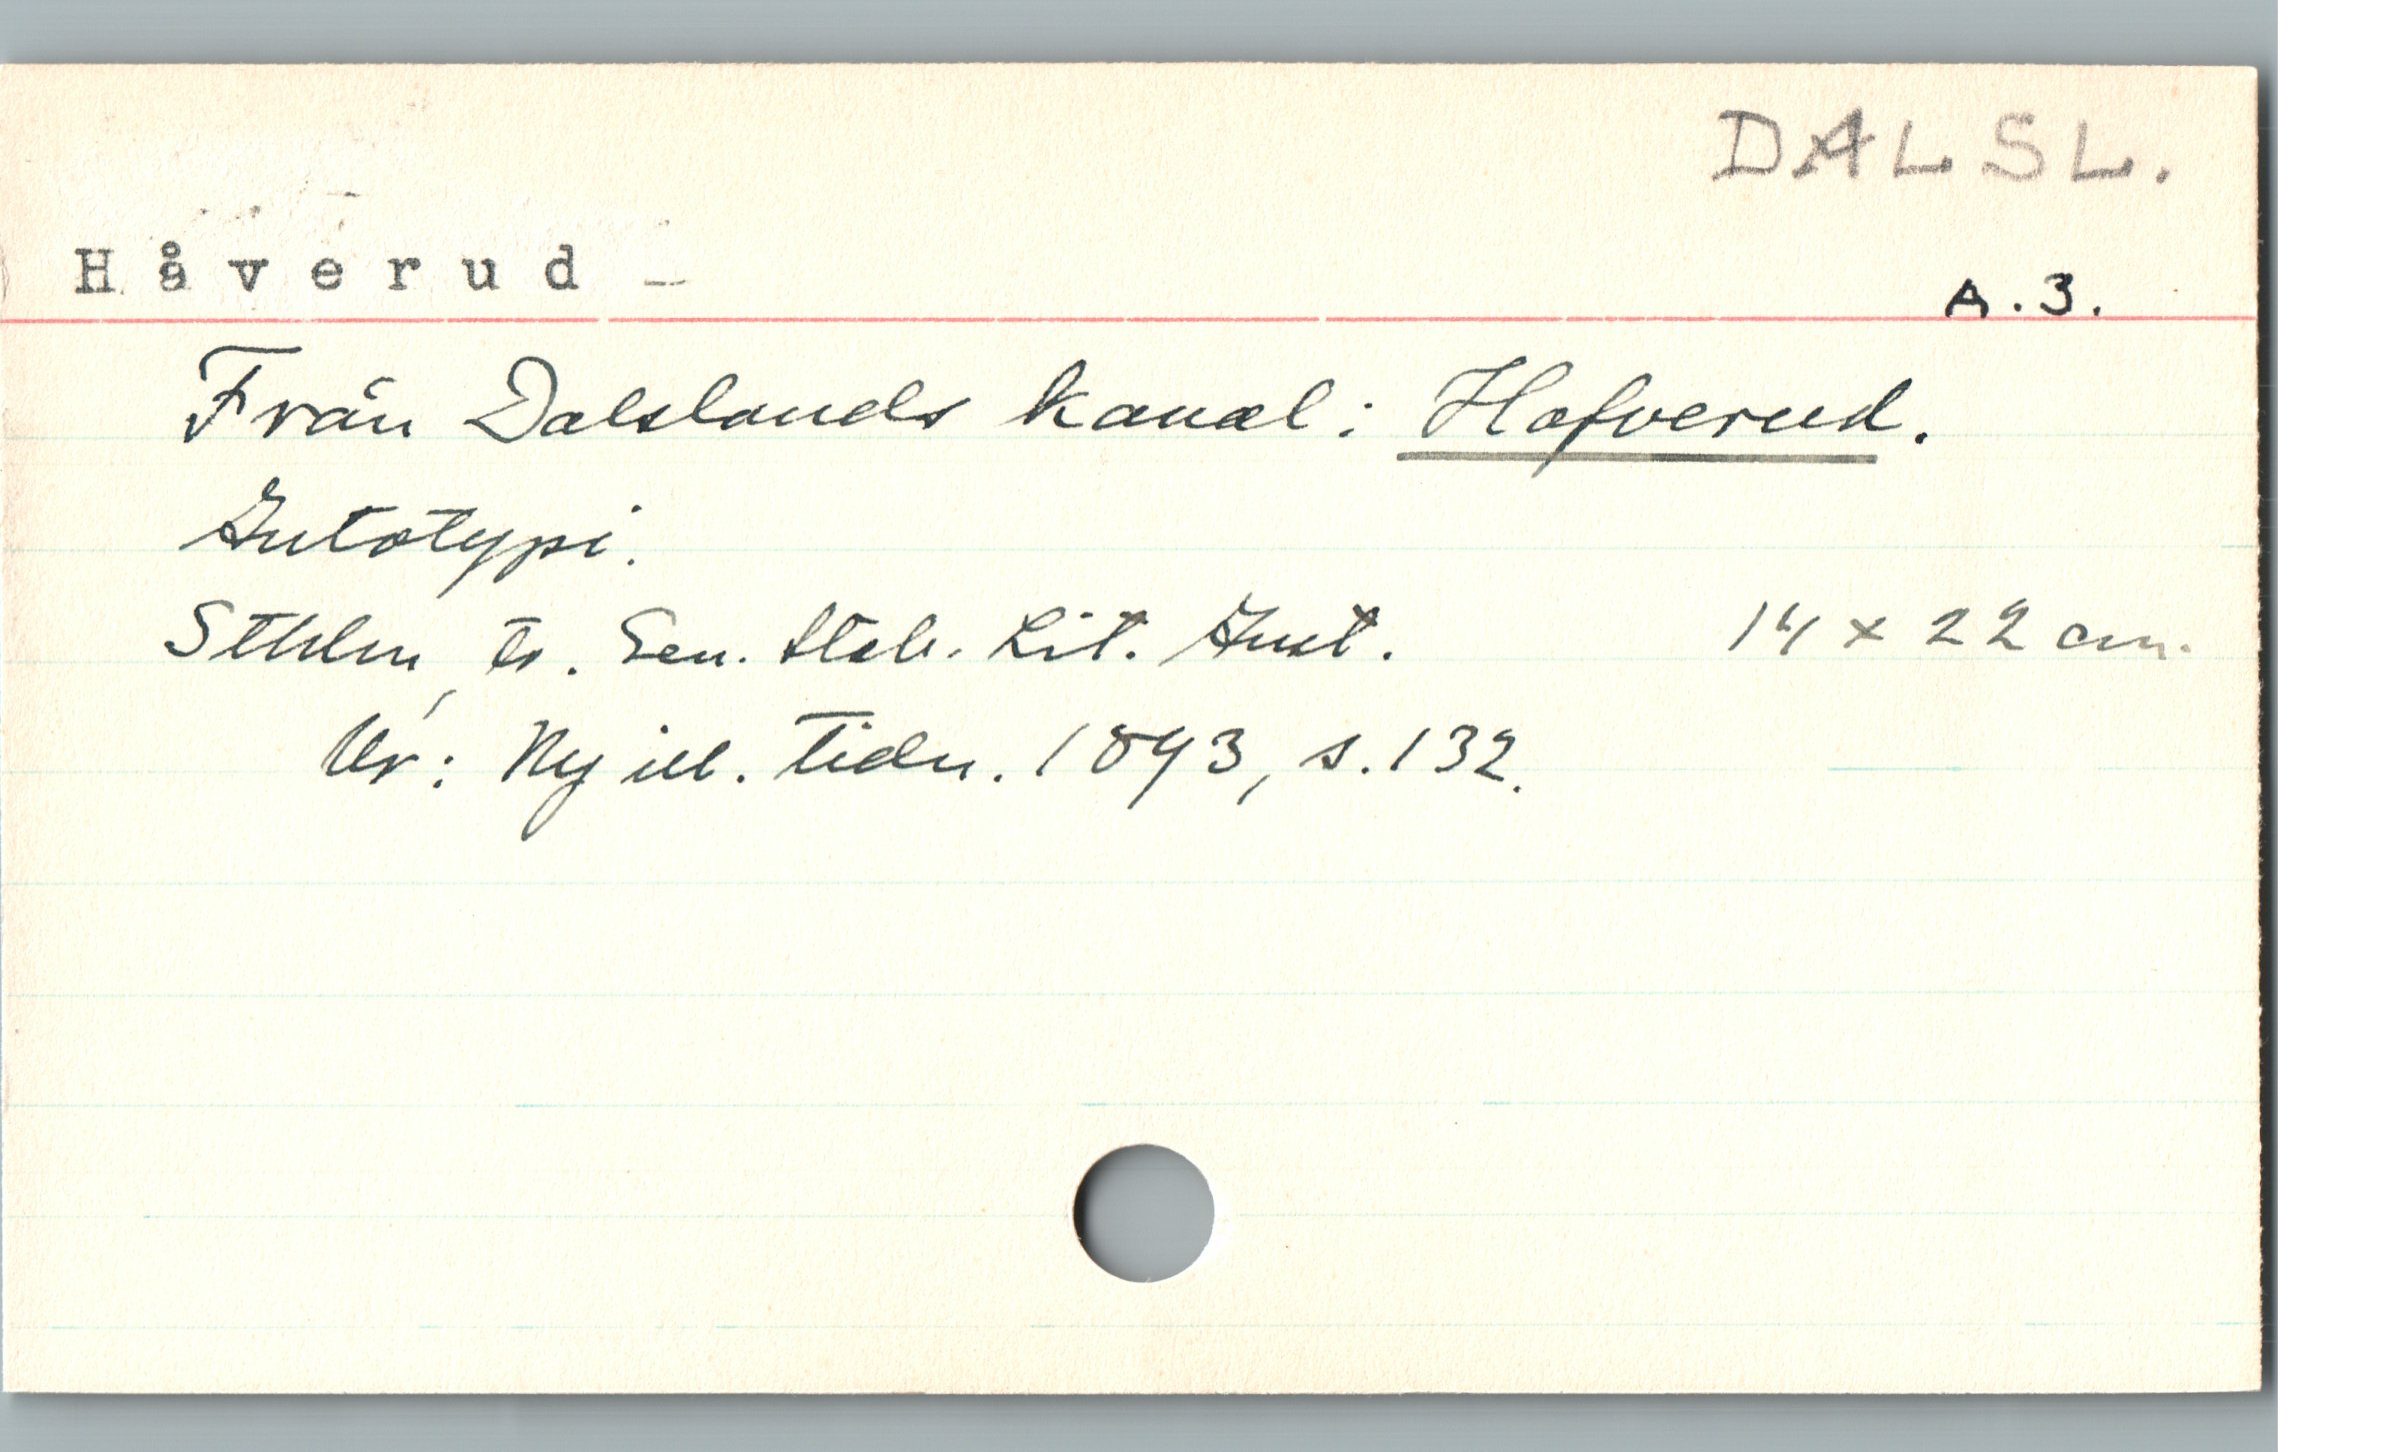 DALSL.
Håverud –
A.3.
Från Dalslands kanal: Hofverud.
Autotypi.
Sthlm, tr. Gen. Stab. Lit. Anst. 14 x 22 cm.
Ur: Ny ill. tidn. 1893, s. 132.